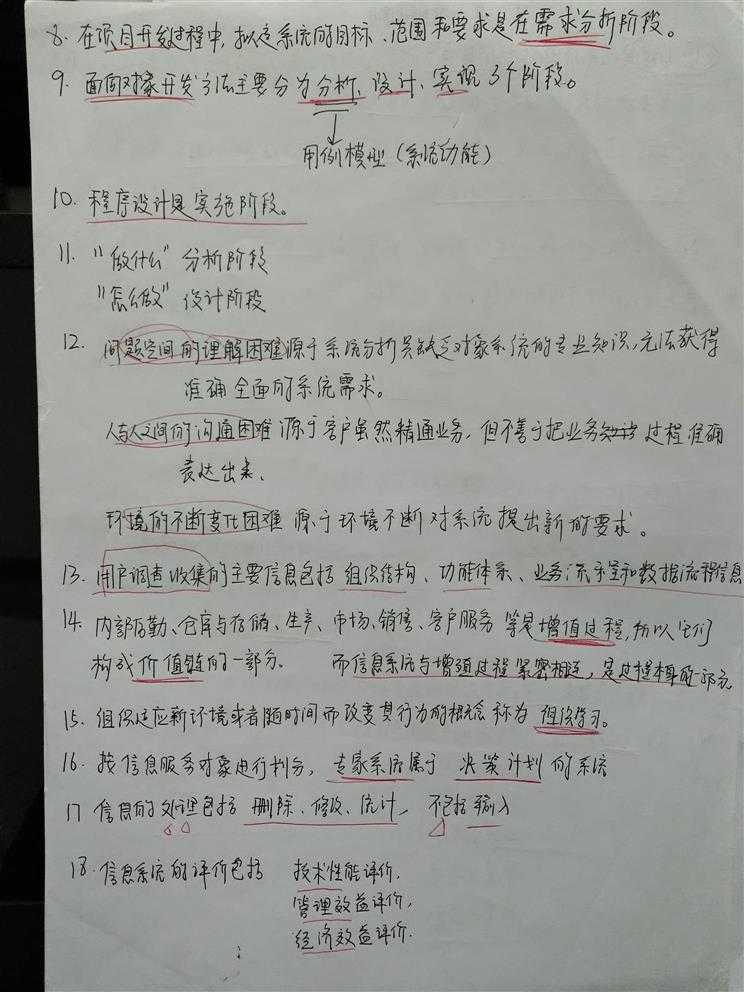 8. 在项目开发过程中,拟定系统的目标、范围和要求是在需求分析阶段。
9. 面向对象开发方法主要分为分析、设计、实现3个阶段。
用例模型(系统功能)
10. 程序设计是实施阶段。
11. "做什么" 分析阶段
"怎么做" 设计阶段
12. 问题空间的理解困难源于系统分析员缺乏对象系统的专业知识,无法获得
准确全面的系统需求。
人与人之间的沟通困难源于客户虽然精通业务,但不善于把业务过程准确
表达出来、
环境的不断变化困难 源于环境不断对系统提出新的要求。
13. 用户调查收集的主要信息包括 组织结构、功能体系、业务流程和数据流程信息
14. 内部后勤、仓库与存储、生产、市场、销售、客户服务 等是增值过程,所以它们
构成价值链的一部分。 而信息系统与增值过程紧密相连,是过程本身的一部分
15. 组织适应新环境或者随时间而改变其行为的概念称为 组织学习。
16. 按信息服务对象进行划分,专家系统属于 决策计划的系统
17 信息的处理包括 删除、修改、统计, 不包括 输入
18. 信息系统的评价包括 技术性能评价,
管理效益评价,
经济效益评价.